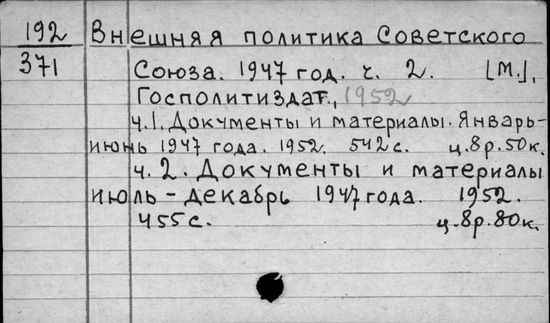 192 Внешняя политика Советского
371 Союза. 1947 год. ч. 2. [М.],
Госполитиздат, 1952
ч.1. Документы и материалы. Январь-
июнь 1947 года. 1952. 542 с. ц. 8 р. 50 к.
ч. 2. Документы и материалы
июль - декабрь 1947 года. 1952.
455 с. ц. 8 р. 80 к.